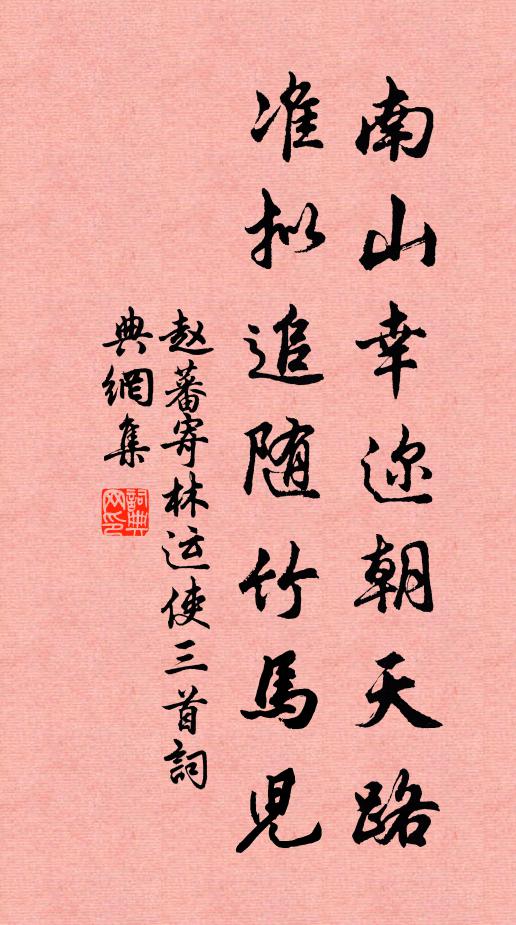 南山幸迩朝天路
准拟追随竹馬児
赵蕃寄林运使三首詞
典網集
詞典網印